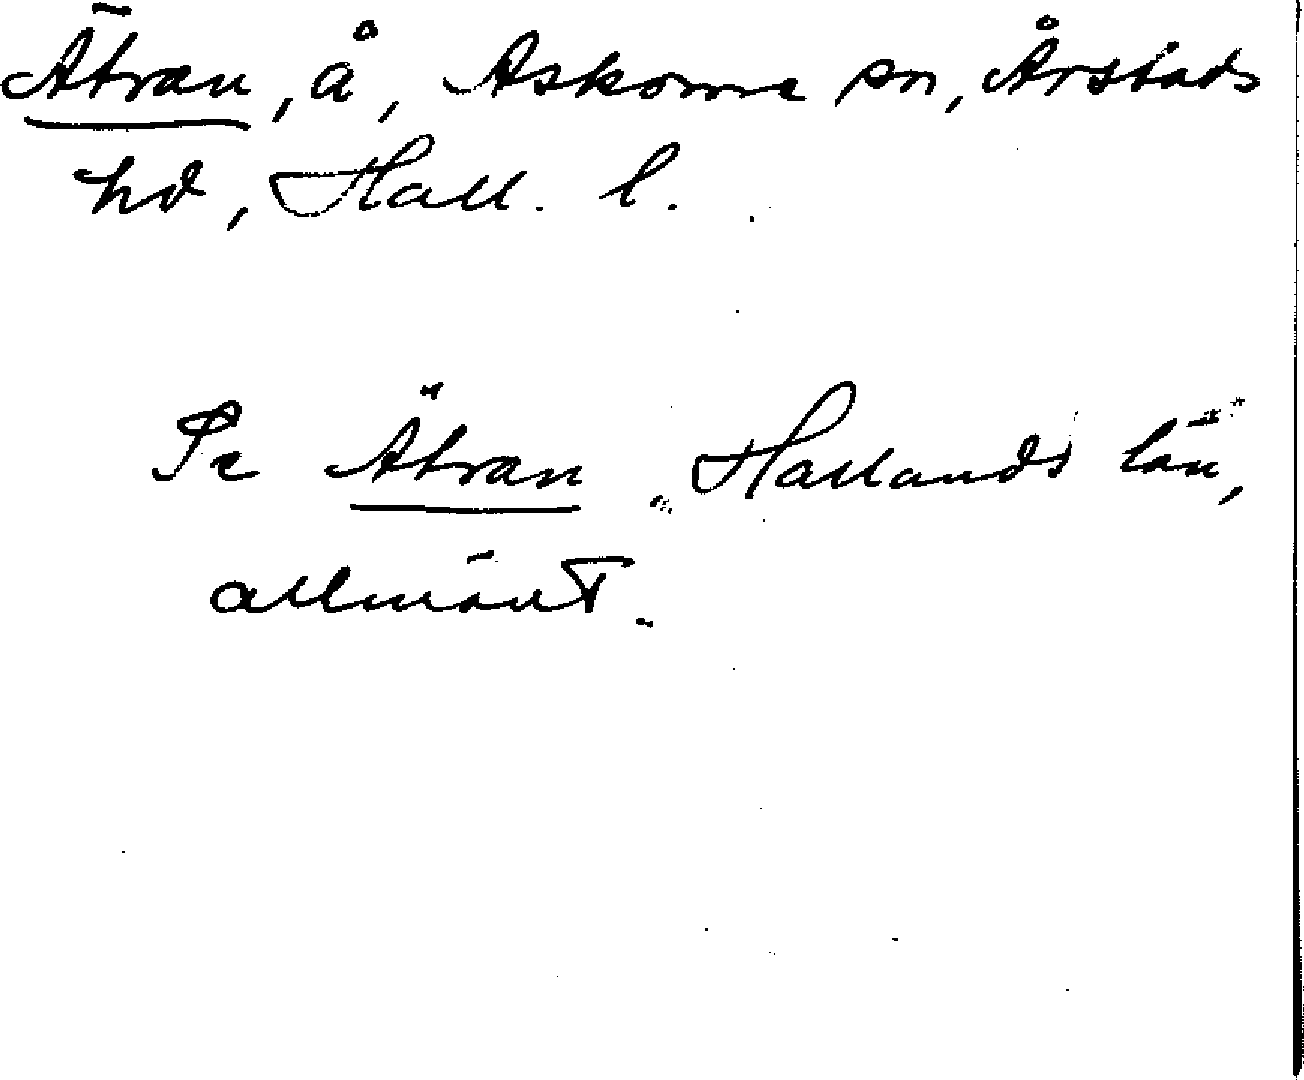 Ätran, å, Askome sn, Årstads
hd, Hall. l.
Se Ätran „Hallands län”,
allmänt.